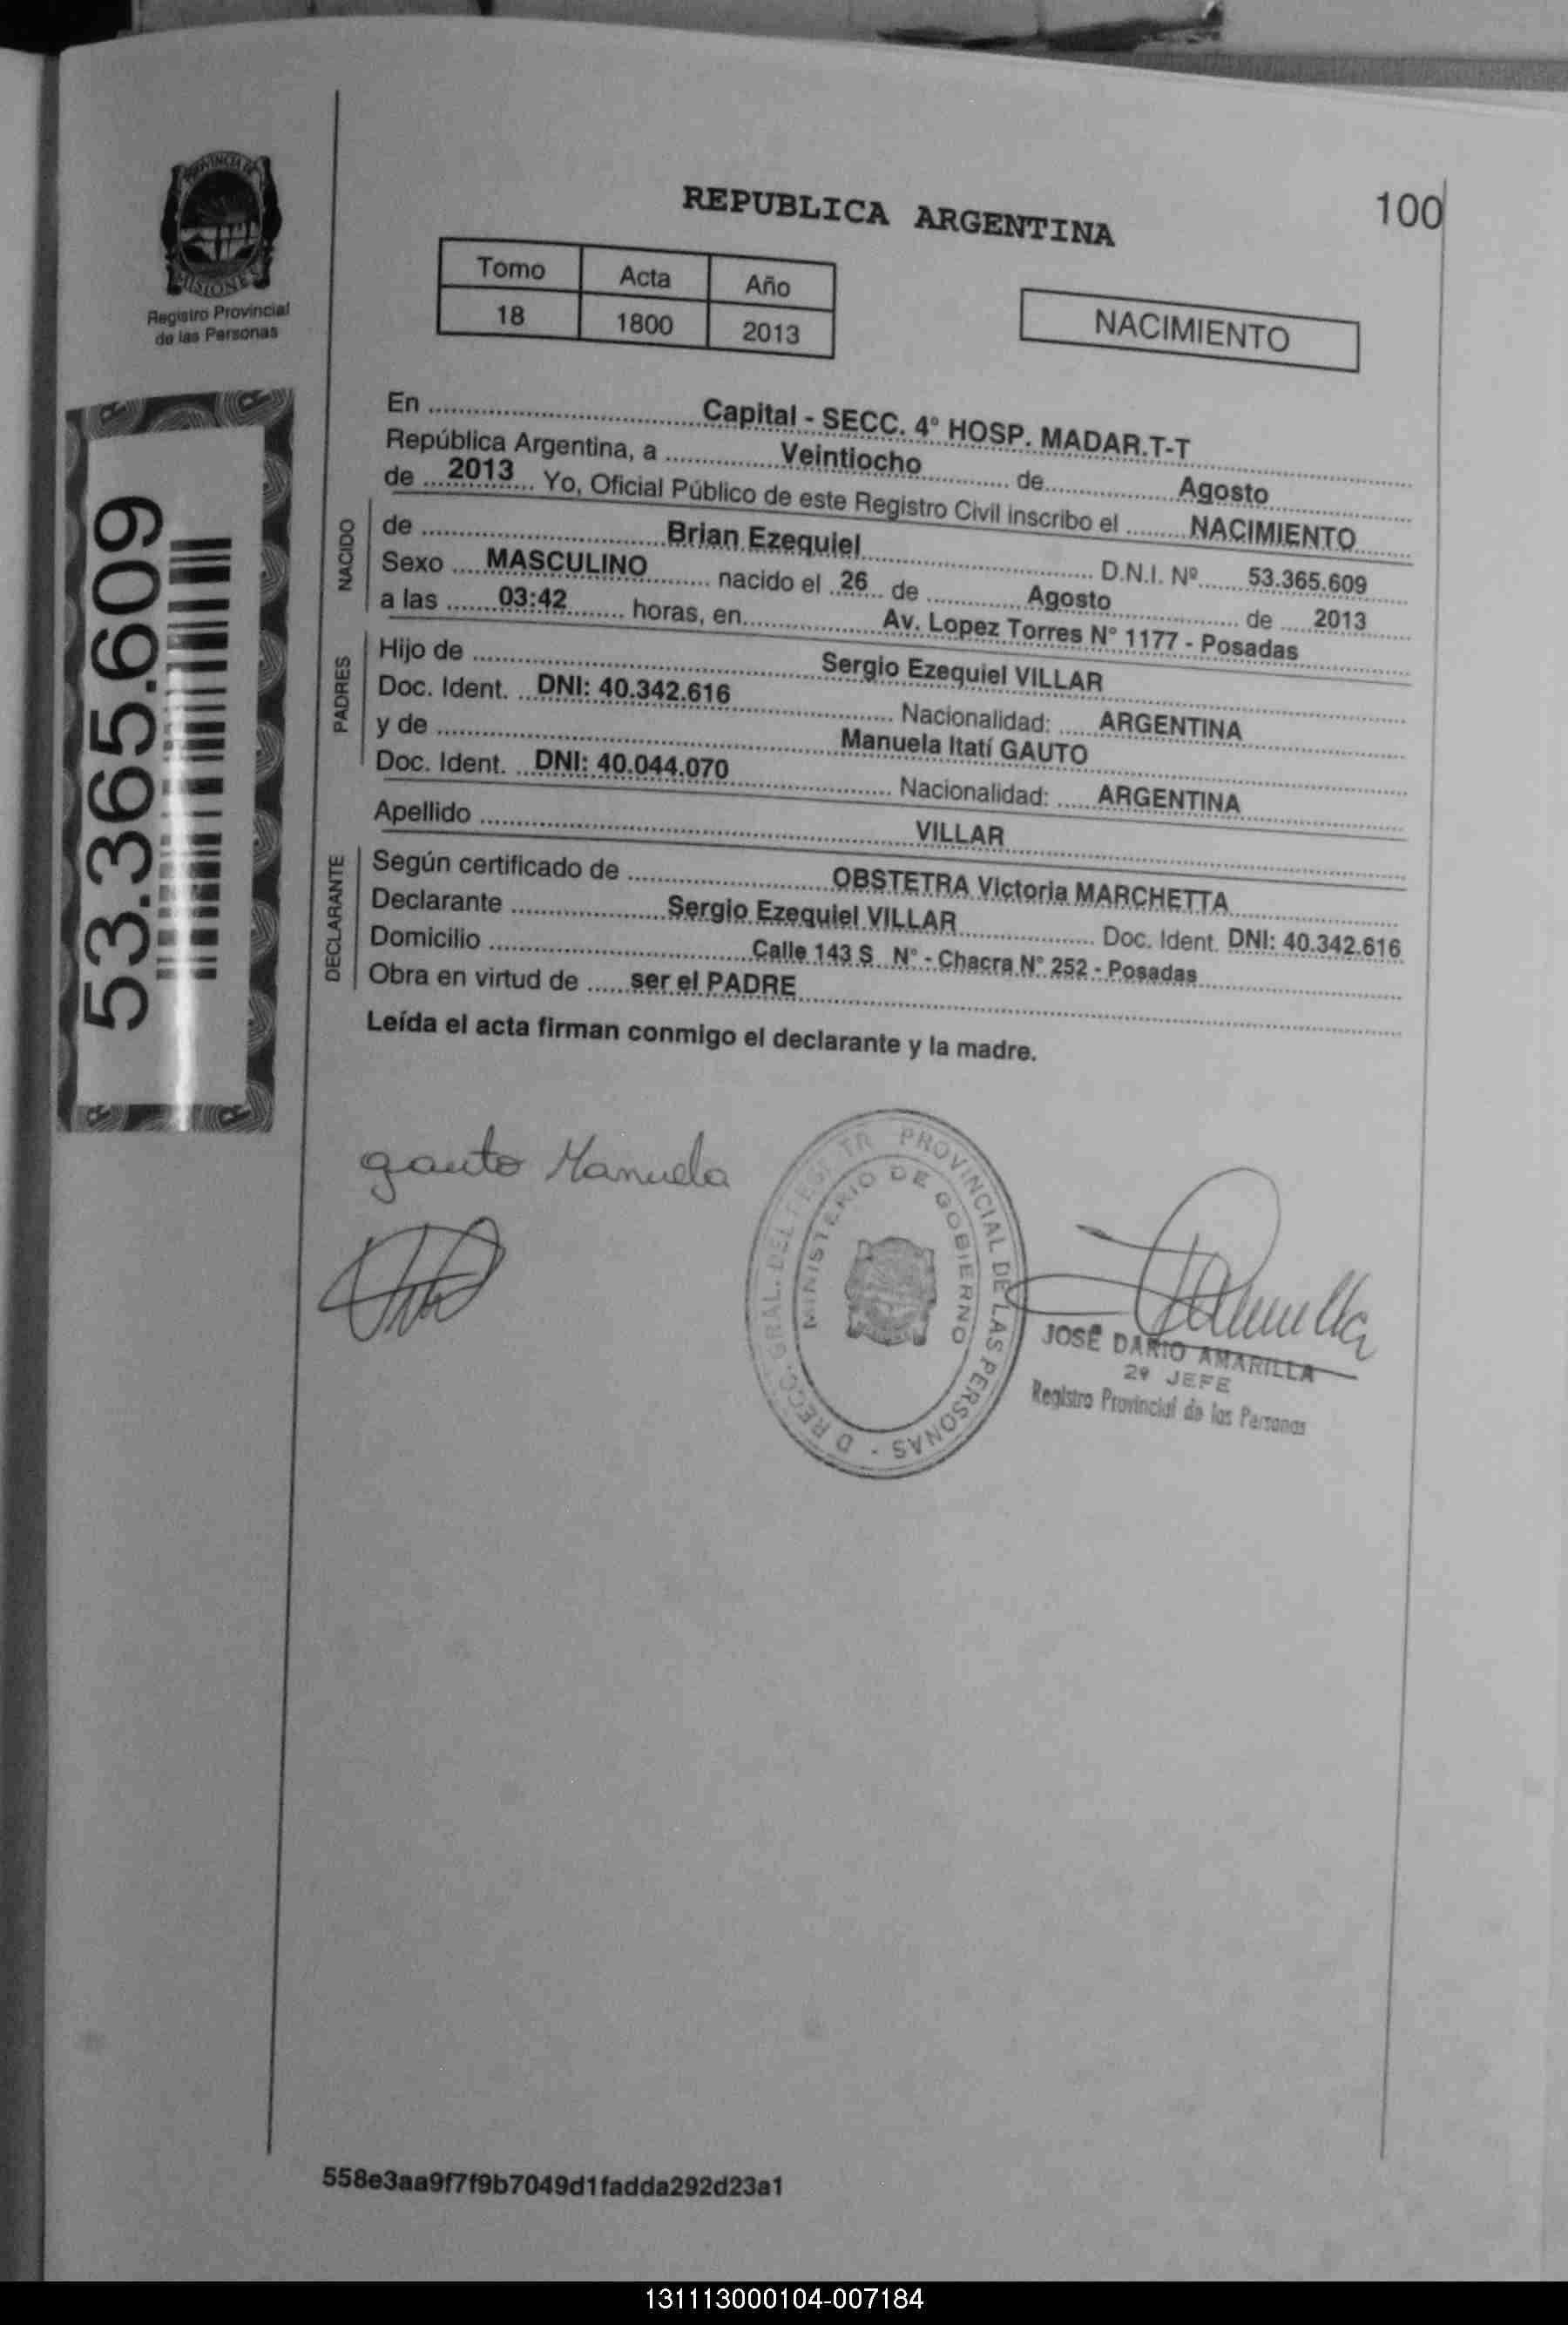 PROVINCIA DE
MISIONES
Registro Provincial
de las Personas
REPUBLICA ARGENTINA
100
Tomo Acta Año
18 1800 2013
NACIMIENTO
53.365.609
En Capital - SECC. 4° HOSP. MADAR.T-T
República Argentina, a Veintiocho de Agosto
de 2013 Yo, Oficial Público de este Registro Civil inscribo el NACIMIENTO
NACIDO
de Brian Ezequiel D.N.I. Nº 53.365.609
Sexo MASCULINO nacido el 26 de Agosto de 2013
a las 03:42 horas, en Av. Lopez Torres N° 1177 - Posadas
PADRES
Hijo de Sergio Ezequiel VILLAR
Doc. Ident. DNI: 40.342.616 Nacionalidad: ARGENTINA
y de Manuela Itatí GAUTO
Doc. Ident. DNI: 40.044.070 Nacionalidad: ARGENTINA
Apellido VILLAR
DECLARANTE
Según certificado de OBSTETRA Victoria MARCHETTA
Declarante Sergio Ezequiel VILLAR Doc. Ident. DNI: 40.342.616
Domicilio Calle 143 S N° - Chacra N° 252 - Posadas
Obra en virtud de ser el PADRE
Leída el acta firman conmigo el declarante y la madre.
gauto Manuela
PROVINCIAL DE LAS PERSONAS -
MINISTERIO DE GOBIERNO
JOSE DARIO AMARILLA
2º JEFE
Registro Provincial de las Personas
558e3aa9f7f9b7049d1fadda292d23a1
131113000104-007184